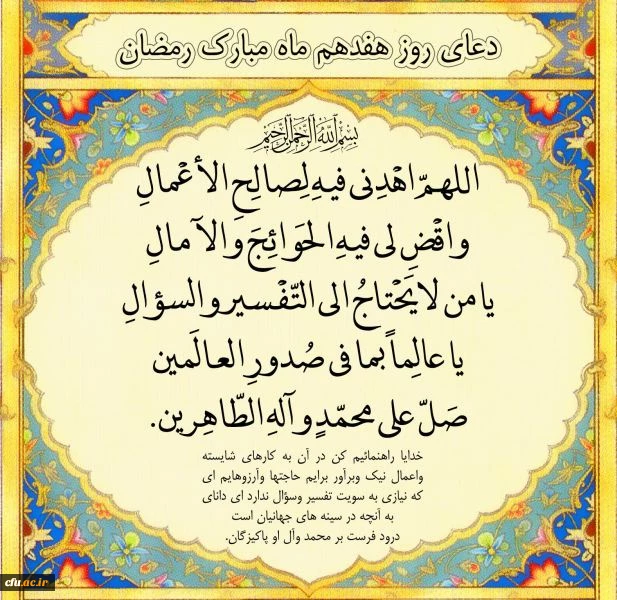 دعای روز هفدهم ماه مبارک رمضان
بِسْمِ اللَّهِ الرَّحْمَنِ الرَّحِيمِ
اللهمّ اهْدِنی فیهِ لِصالِحِ الأعْمالِ
واقْضِ لی فیهِ الحَوائِجَ والآمالِ
یا من لا یَحْتاجُ الی التّفْسیر والسؤالِ
یا عالِماً بما فی صُدورِ العالَمین
صَلّ علی محمّدٍ وآلهِ الطّاهِرین.
خدایا راهنمائیم کن در آن به کارهای شایسته
واعمال نیک وبرآور برایم حاجتها وآرزوهایم ای
که نیازی به سویت تفسیر وسؤال ندارد ای دانای
به آنچه در سینه های جهانیان است
درود فرست بر محمد وآل او پاکیزگان.
cfu.ac.ir